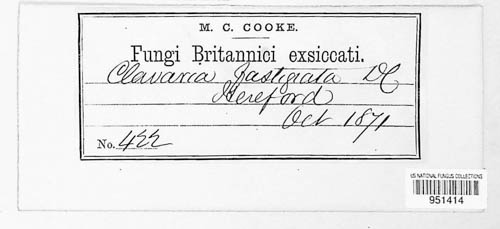 M. C. COOKE.
Fungi Britannici exsiccati.
Clavaria fastigiata DC
Hereford
Oct 1871
No. 422
US NATIONAL FUNGUS COLLECTIONS
951414